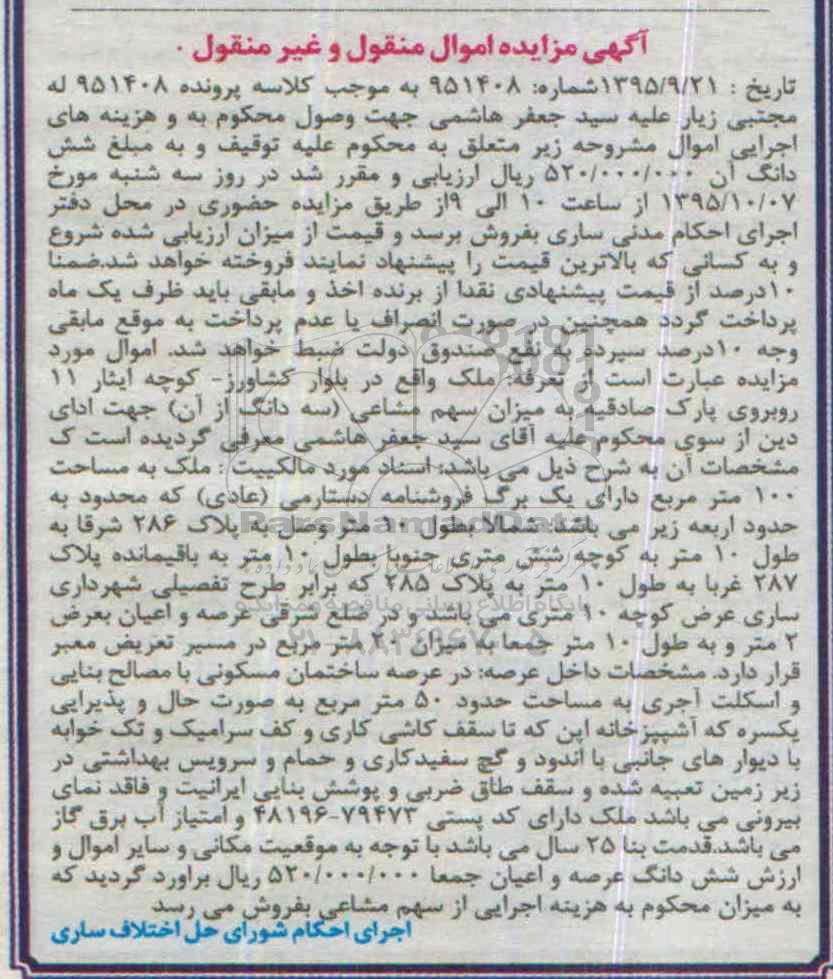 آگهی مزایده اموال منقول و غیر منقول .
تاریخ : ۱۳۹۵/۹/۲۱شماره: ۹۵۱۴۰۸ به موجب کلاسه پرونده ۹۵۱۴۰۸ له
مجتبی زیار علیه سید جعفر هاشمی جهت وصول محکوم به و هزینه های
اجرایی اموال مشروحه زیر متعلق به محکوم علیه توقیف و به مبلغ شش
دانگ آن ۵۲۰/۰۰۰/۰۰۰ ریال ارزیابی و مقرر شد در روز سه شنبه مورخ
۱۳۹۵/۱۰/۰۷ از ساعت ۱۰ الی ۹از طریق مزایده حضوری در محل دفتر
اجرای احکام مدنی ساری بفروش برسد و قیمت از میزان ارزیابی شده شروع
و به کسانی که بالاترین قیمت را پیشنهاد نمایند فروخته خواهد شد.ضمنا
۱۰درصد از قیمت پیشنهادی نقدا از برنده اخذ و مابقی باید ظرف یک ماه
پرداخت گردد همچنین در صورت انصراف یا عدم پرداخت به موقع مابقی
وجه ۱۰درصد سپرده به نفع صندوق دولت ضبط خواهد شد. اموال مورد
مزایده عبارت است از تعرفه: ملک واقع در بلوار کشاورز- کوچه ایثار ۱۱
روبروی پارک صادقیه به میزان سهم مشاعی (سه دانگ از آن) جهت ادای
دین از سوی محکوم علیه آقای سید جعفر هاشمی معرفی گردیده است ک
مشخصات آن به شرح ذیل می باشد: اسناد مورد مالکییت : ملک به مساحت
۱۰۰ متر مربع دارای یک برگ فروشنامه دستارمی (عادی) که محدود به
حدود اربعه زیر می باشد: شمالا بطول ۱۰ متر وصل به پلاک ۲۸۶ شرقا به
طول ۱۰ متر به کوچه شش متری جنوبا بطول ۱۰ متر به باقیمانده پلاک
۲۸۷ غربا به طول ۱۰ متر به پلاک ۲۸۵ که برابر طرح تفصیلی شهرداری
ساری عرض کوچه ۱۰ متری می باشد و در ضلع شرقی عرصه و اعیان بعرض
۲ متر و به طول ۱۰ متر جمعا به میزان ۲۰ متر مربع در مسیر تعریض معبر
قرار دارد. مشخصات داخل عرصه: در عرصه ساختمان مسکونی با مصالح بنایی
و اسکلت آجری به مساحت حدود ۵۰ متر مربع به صورت حال و پذیرایی
یکسره که آشپزخانه اپن که تا سقف کاشی کاری و کف سرامیک و تک خوابه
با دیوار های جانبی با اندود و گچ سفیدکاری و حمام و سرویس بهداشتی در
زیر زمین تعبیه شده و سقف طاق ضربی و پوشش بنایی ایرانیت و فاقد نمای
بیرونی می باشد ملک دارای کد پستی ۷۹۴۷۳-۴۸۱۹۶ و امتیاز آب برق گاز
می باشد.قدمت بنا ۲۵ سال می باشد با توجه به موقعیت مکانی و سایر اموال و
ارزش شش دانگ عرصه و اعیان جمعا ۵۲۰/۰۰۰/۰۰۰ ریال براورد گردید که
به میزان محکوم به هزینه اجرایی از سهم مشاعی بفروش می رسد
اجرای احکام شورای حل اختلاف ساری
ParsNamadData
پایگاه اطلاع رسانی مناقصه و مزایده